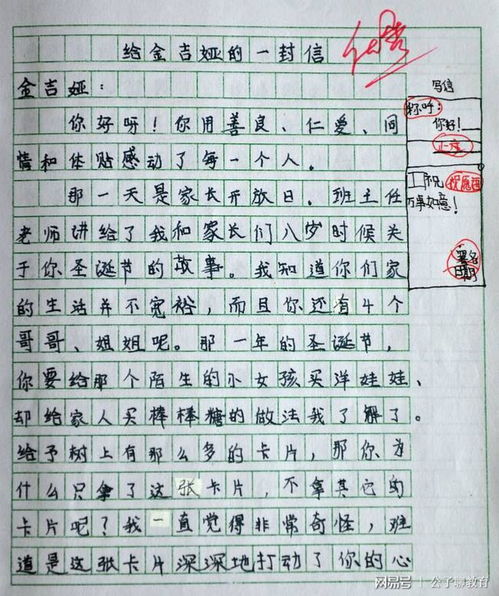 给金吉娅的一封信
金吉娅：
你好呀！你用善良、仁爱、同
情和体贴感动了每一个人。
那一天是家长开放日。班主任
老师讲给了我和家长们八岁时候关
于你圣诞节的故事。我知道你们家
的生活并不宽裕，而且你还有4个
哥哥、姐姐呢。那一年的圣诞节，
你要给那个陌生的小女孩买洋娃娃、
却给家人买棒棒糖的做法我了解了。
给予树上有那么多的卡片，那你为
什么只拿了这张卡片，不拿其它的
卡片呢？我一直觉得非常奇怪，难
道是这张卡片深深地打动了你的心
写信
称呼：
你好！
正文
祝 祝愿语
万事如意！
署名
日期
网易号 | 公子聊教育